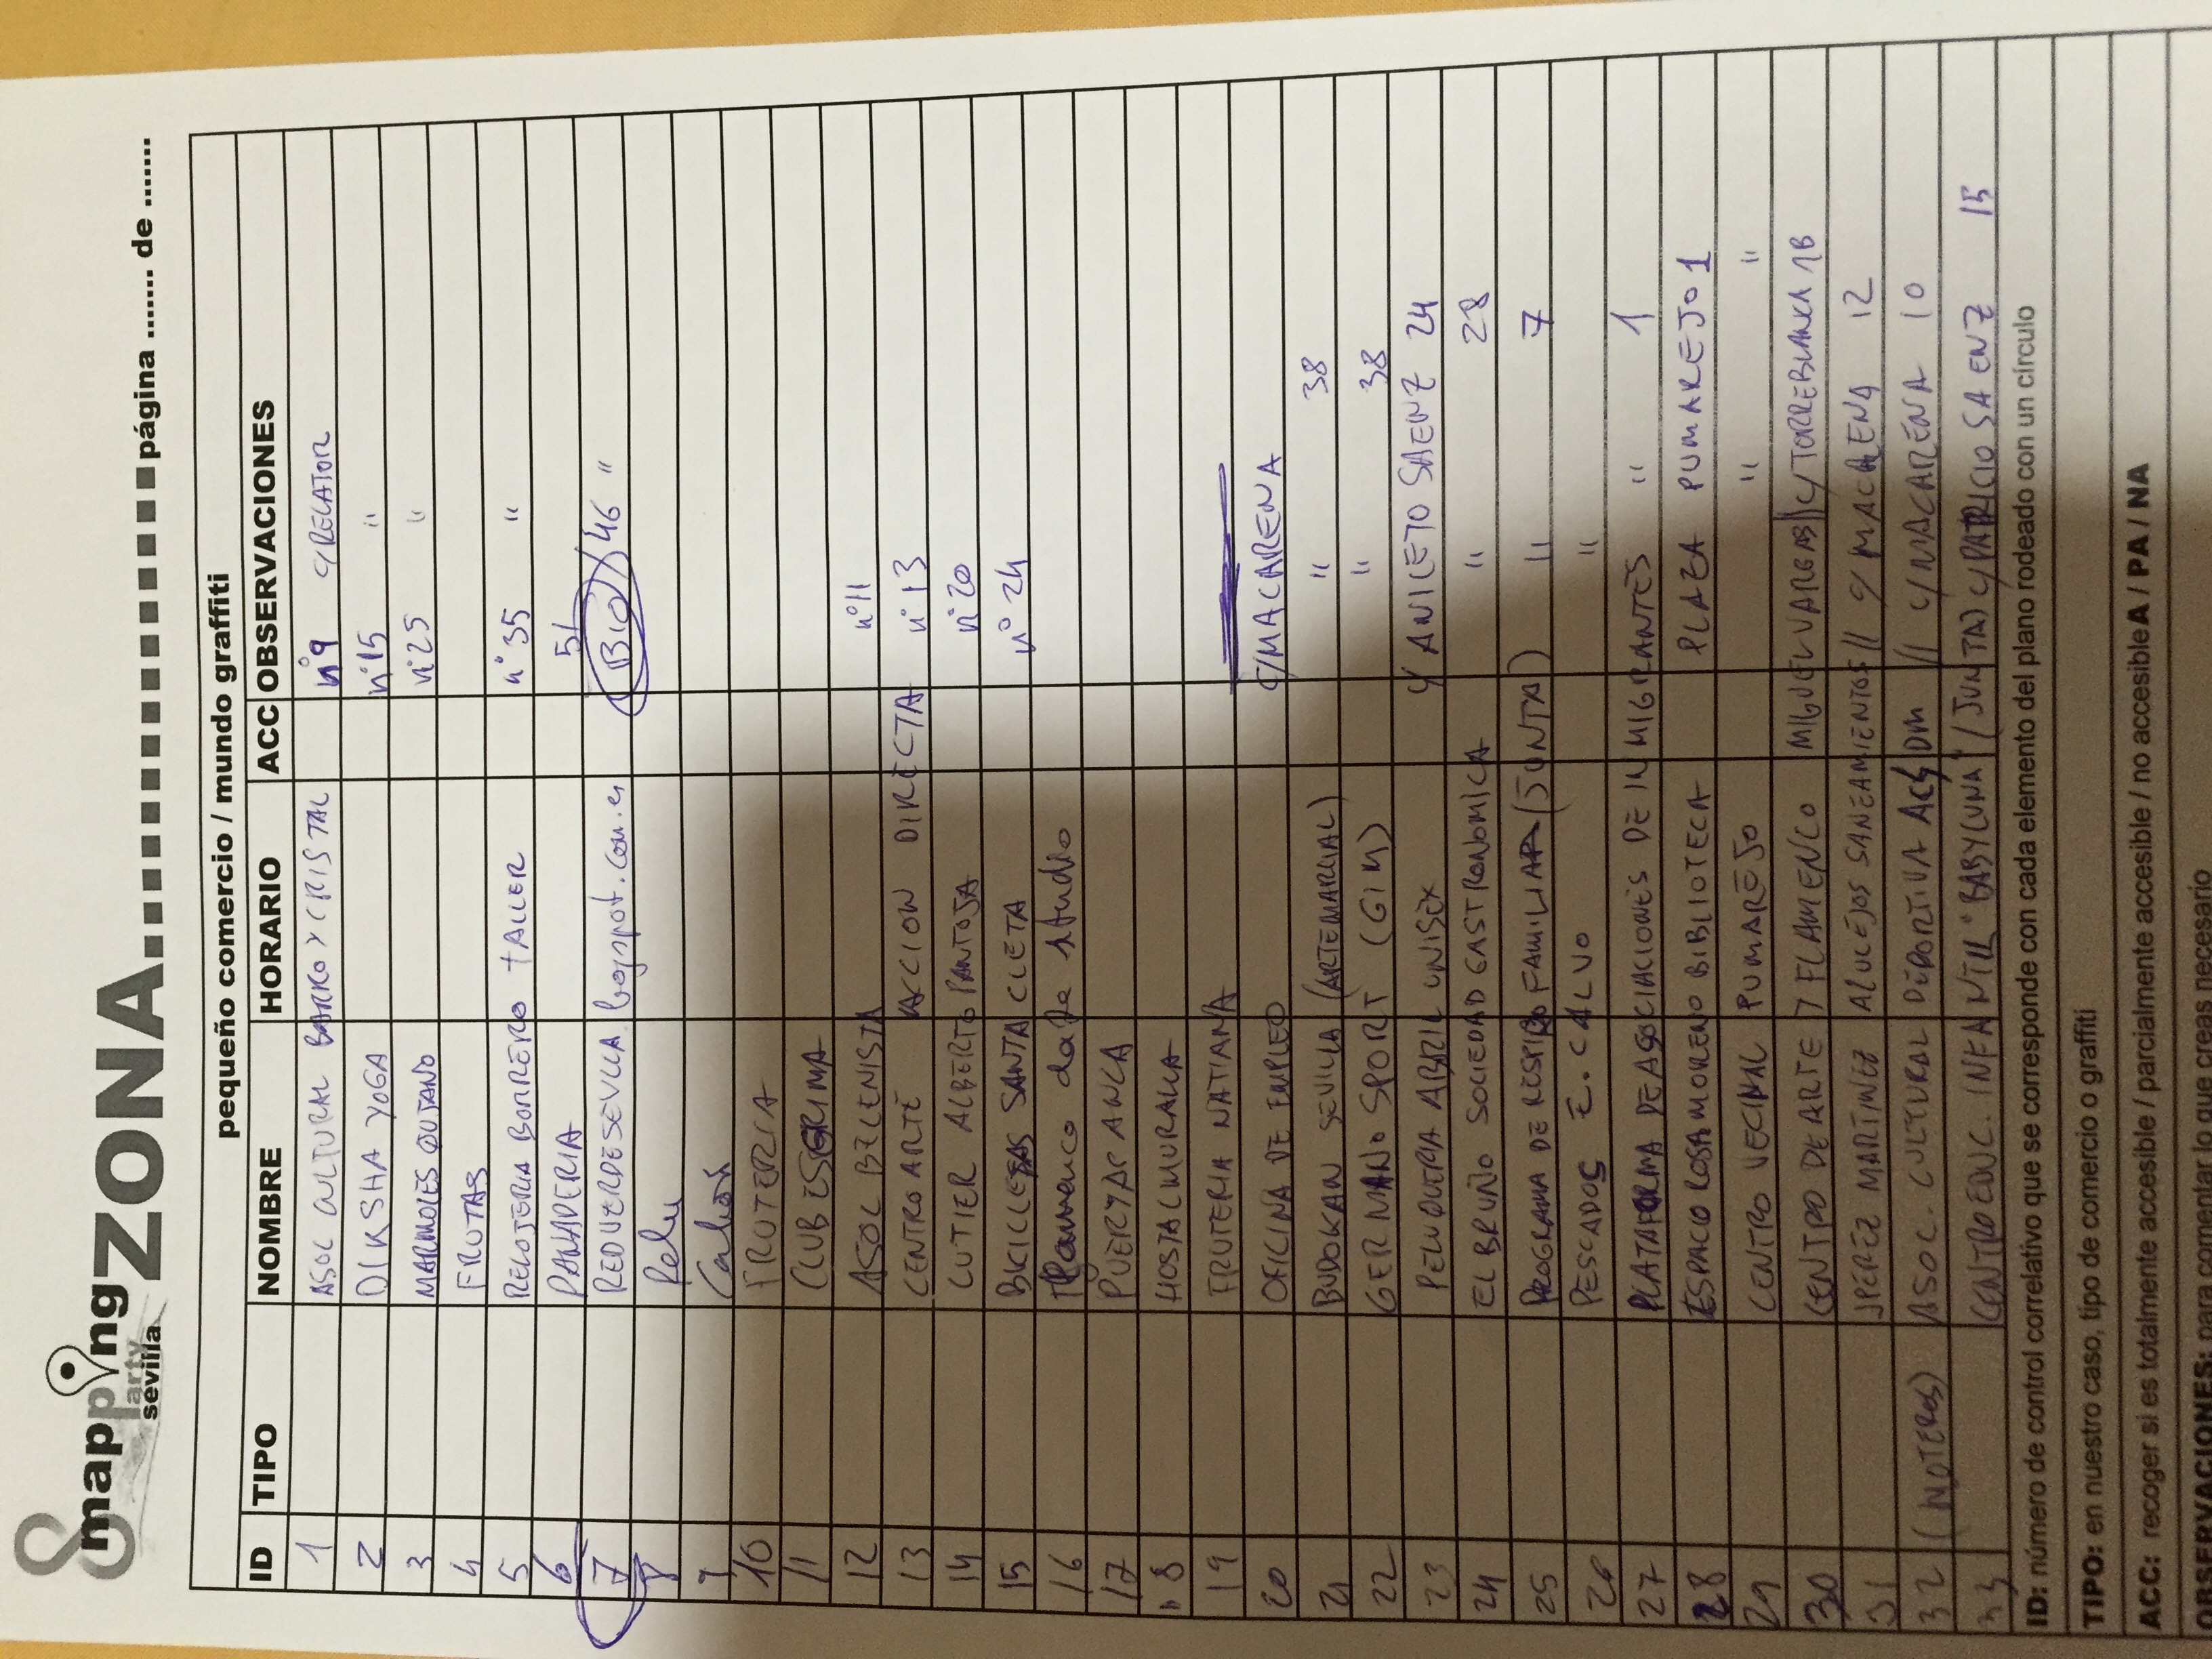 8 mapping party sevilla ZONA................ página ....... de .......
pequeño comercio / mundo graffiti
ID TIPO NOMBRE HORARIO ACC OBSERVACIONES
1 ASOC CULTURAL BARRO Y CRISTAL nº9 C/RELATOR
2 DIKSHA YOGA nº15 "
3 MARMOLES QUIJANO nº25 "
4 FRUTAS
5 RELOJERIA BORRERO TALLER nº35 "
6 PANADERIA 51
7 REDVERDESEVILLA. blogspot.com.es BIO / 46 "
8
9
10 FRUTERIA
11 CLUB ESGRIMA
12 ASOC BELENISTA nº11
13 CENTRO ARTE ACCION DIRECTA nº13
14 LUTIER ALBERTO PANTOJA nº20
15 BICICLETAS SANTA CLETA nº24
16 Flamenco danze studio
17
18 HOSTAL MURALLA
19 FRUTERIA NATIANA
20 OFICINA DE EMPLEO C/MACARENA
21 BUDOKAN SEVILLA (ARTE MARCIAL) " 38
22 GERMANO SPORT (GIM) " 38
23 PELUQUERIA ABRIL UNISEX C/ ANICETO SAENZ 24
24 EL BRUÑO SOCIEDAD GASTRONOMICA " 28
25 PROGRAMA DE RESPIRO FAMILIAR (JUNTA) " 7
26 PESCADOS E. CALVO "
27 PLATAFORMA DE ASOCIACIONES DE INMIGRANTES " 1
28 ESPACIO ROSA MORENO BIBLIOTECA PLAZA PUMAREJO 1
29 CENTRO VECINAL PUMAREJO " "
30 CENTRO DE ARTE Y FLAMENCO MIGUEL VARGAS // C/ TORREBLANCA 18
31 JPEREZ MARTINEZ AZULEJOS SANEAMIENTOS // C/ MACARENA 12
32 (MOTEROS) ASOC. CULTURAL DEPORTIVA ACSDM // C/MACARENA 10
33 CENTRO EDUC. INFANTIL "BABYLUNA" (JUNTA) C/PATRICIO SAENZ 15
ID: número de control correlativo que se corresponde con cada elemento del plano rodeado con un círculo
TIPO: en nuestro caso, tipo de comercio o graffiti
ACC: recoger si es totalmente accesible / parcialmente accesible / no accesible A / PA / NA
OBSERVACIONES: para comentar lo que creas necesario